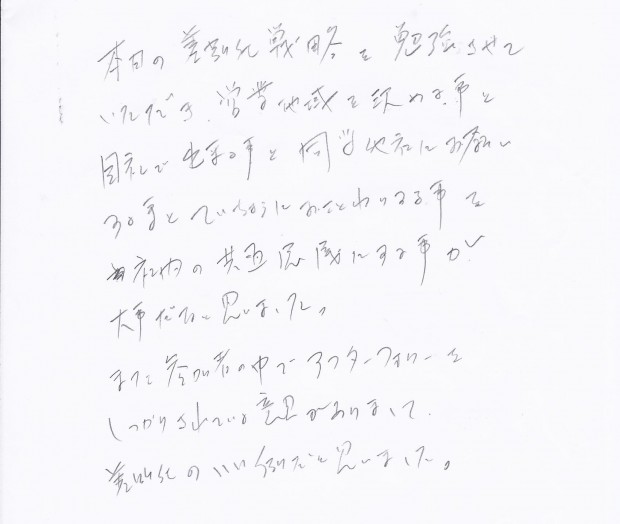 本日の差別化戦略を勉強させて
いただき、営業地域を決める事と
自社で出来る事と同業他社にお願い
する事とていねいにおことわりする事を
社内の共通認識にする事が
大事だなと思いました。
また参加者の中でアフターフォローを
しっかりされている意見がありまして、
差別化のいい例だと思いました。